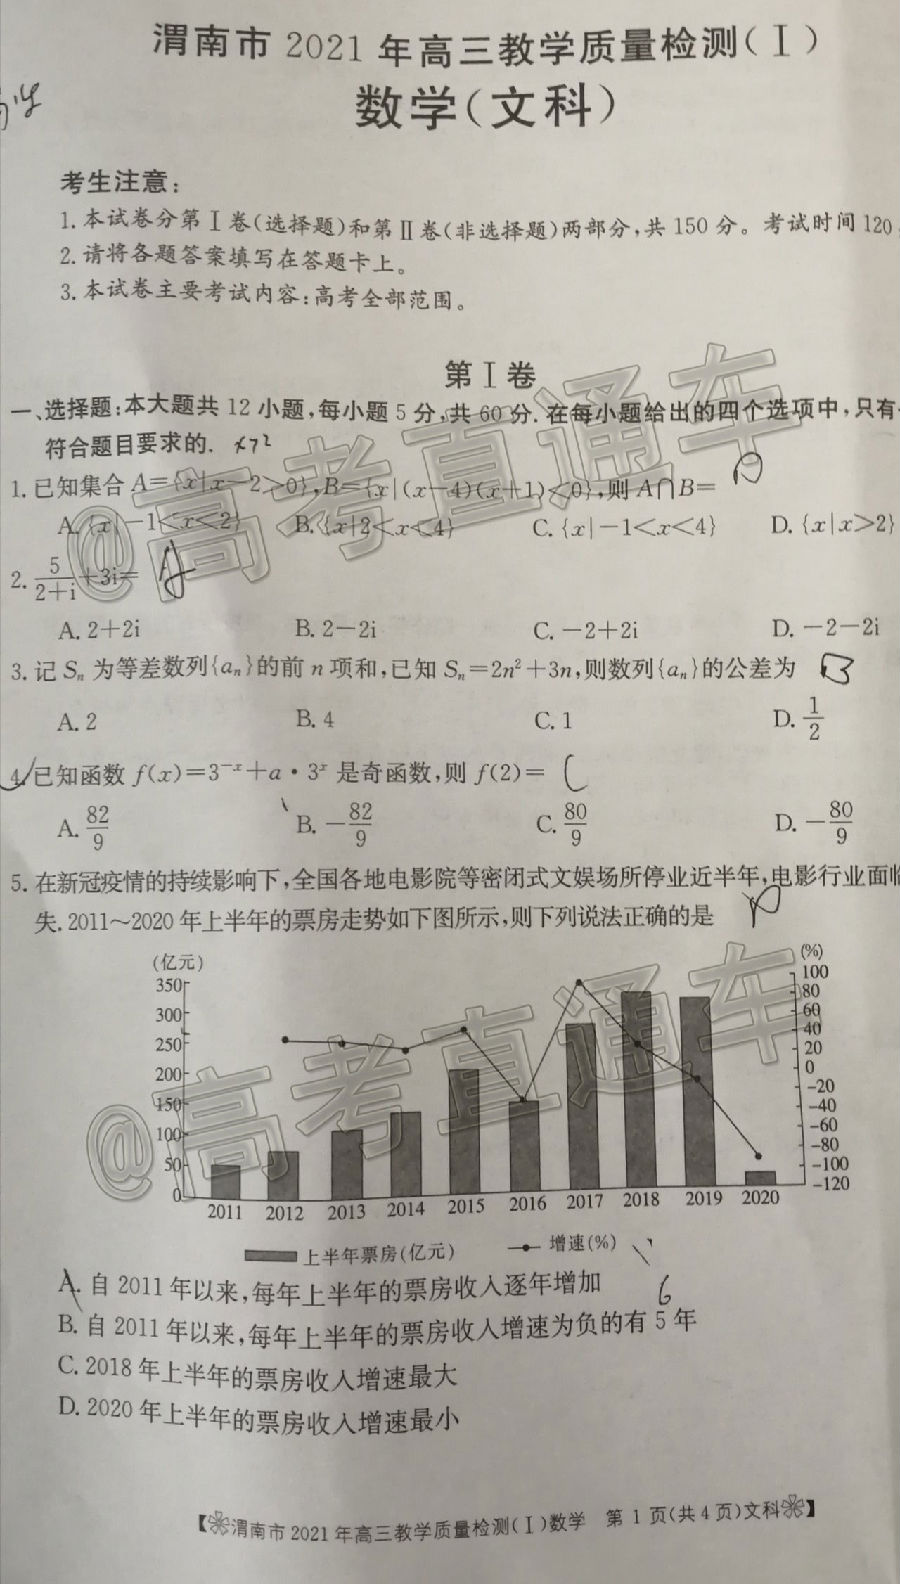 渭南市 2021 年高三教学质量检测(Ⅰ)
数学(文科)
考生注意:
1. 本试卷分第Ⅰ卷(选择题)和第Ⅱ卷(非选择题)两部分,共 150 分。考试时间 120
2. 请将各题答案填写在答题卡上。
3. 本试卷主要考试内容:高考全部范围。
第Ⅰ卷
一、选择题:本大题共 12 小题,每小题 5 分,共 60 分. 在每小题给出的四个选项中,只有
符合题目要求的. x>2
1. 已知集合 A={x|x-2>0},B={x|(x-4)(x+1)<0},则 A∩B=
A. {x|-1<x<2} B. {x|2<x<4} C. {x|-1<x<4} D. {x|x>2}
2. 5/(2+i)+3i= A
A. 2+2i B. 2-2i C. -2+2i D. -2-2i
3. 记 Sₙ 为等差数列{aₙ}的前 n 项和,已知 Sₙ=2n²+3n,则数列{aₙ}的公差为 B
A. 2 B. 4 C. 1 D. 1/2
4. 已知函数 f(x)=3⁻ˣ+a·3ˣ 是奇函数,则 f(2)= C
A. 82/9 B. -82/9 C. 80/9 D. -80/9
5. 在新冠疫情的持续影响下,全国各地电影院等密闭式文娱场所停业近半年,电影行业面临
失. 2011~2020 年上半年的票房走势如下图所示,则下列说法正确的是 D
(亿元) (%)
350 100
300 80
250 60
200 40
150 20
100 0
50 -20
0 -40
-60
-80
-100
-120
2011 2012 2013 2014 2015 2016 2017 2018 2019 2020
上半年票房(亿元) 增速(%)
A. 自 2011 年以来,每年上半年的票房收入逐年增加
6
B. 自 2011 年以来,每年上半年的票房收入增速为负的有 5 年
C. 2018 年上半年的票房收入增速最大
D. 2020 年上半年的票房收入增速最小
【渭南市 2021 年高三教学质量检测(Ⅰ)数学 第 1 页(共 4 页)文科】
@高考直通车
@高考直通车